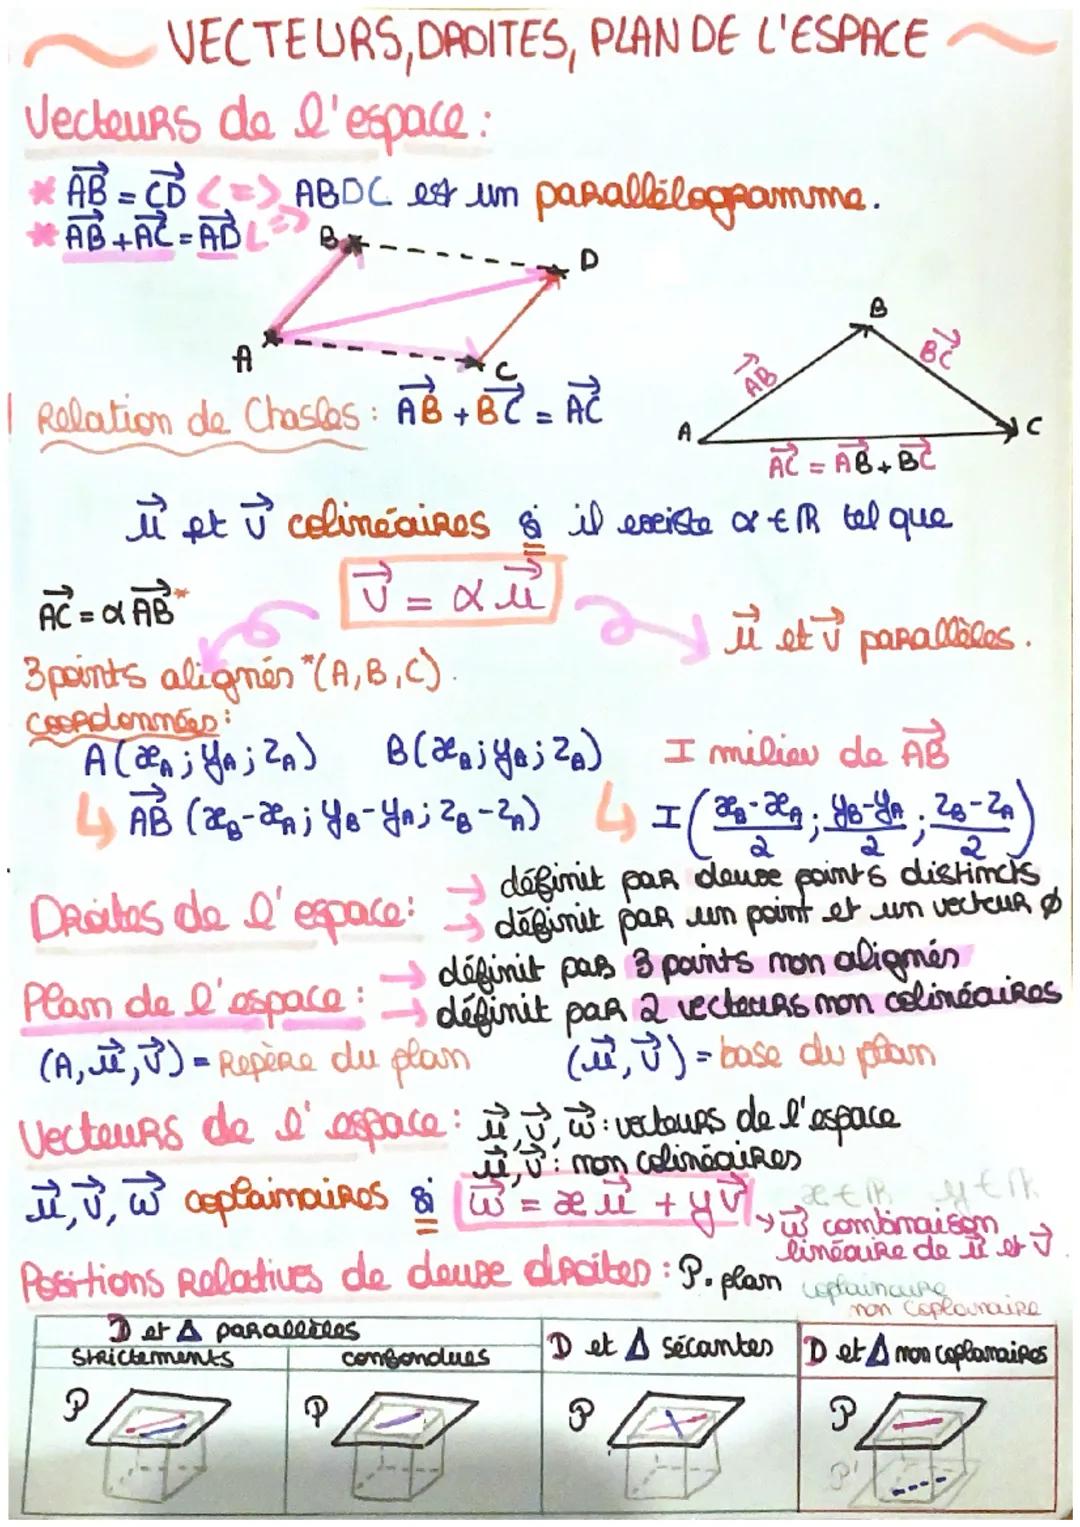 VECTEURS, DROITES, PLAN DE L'ESPACE
Vecteurs de l'espace :
* AB⃗ = CD⃗ <=> ABDC est un parallélogramme.
* AB⃗ + AC⃗ = AD⃗ <=>
B
D
A
C
B
AB⃗
BC⃗
A
C
AC⃗ = AB⃗ + BC⃗
Relation de Chasles : AB⃗ + BC⃗ = AC⃗
u⃗ et v⃗ colinéaires si il existe α ∈ ℝ tel que
AC⃗ = α AB⃗ *
v⃗ = α u⃗
u⃗ et v⃗ parallèles.
3 points alignés *(A, B, C).
coordonnées :
A(xA ; yA ; zA) B(xB ; yB ; zB) I milieu de AB⃗
↳ AB⃗ (xB-xA ; yB-yA ; zB-zA) ↳ I((xB-xA)/2 ; (yB-yA)/2 ; (zB-zA)/2)
Droites de l'espace :
→ définit par deux points distincts
→ définit par un point et un vecteur ∅
Plan de l'espace :
→ définit par 3 points non alignés
→ définit par 2 vecteurs non colinéaires
(A, u⃗, v⃗) = Repère du plan (u⃗, v⃗) = base du plan
Vecteurs de l'espace : u⃗, v⃗, w⃗ : vecteurs de l'espace
u⃗, v⃗ : non colinéaires
u⃗, v⃗, w⃗ coplainaires si w⃗ = x u⃗ + y v⃗ x ∈ ℝ y ∈ ℝ
→ w⃗ combinaison
linéaire de u⃗ et v⃗.
Positions Relatives de deux droites : P. plan
coplainaire
non coplainaire
D et Δ parallèles
Strictements
confondues
D et Δ sécantes
D et Δ non coplanaires
P
P
P
P
P'